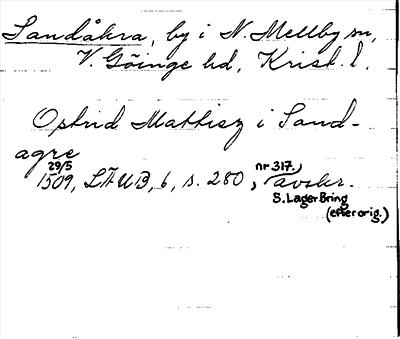 Sandåkra, by i N. Mellby sn,
V. Göinge hd, Krist. l.
Ostrid Mattisz i Sand-
agre
29/5 nr 317.
1509, LÄUB, 6, s. 280, avskr.
S. Lager Bring
(efter orig.)